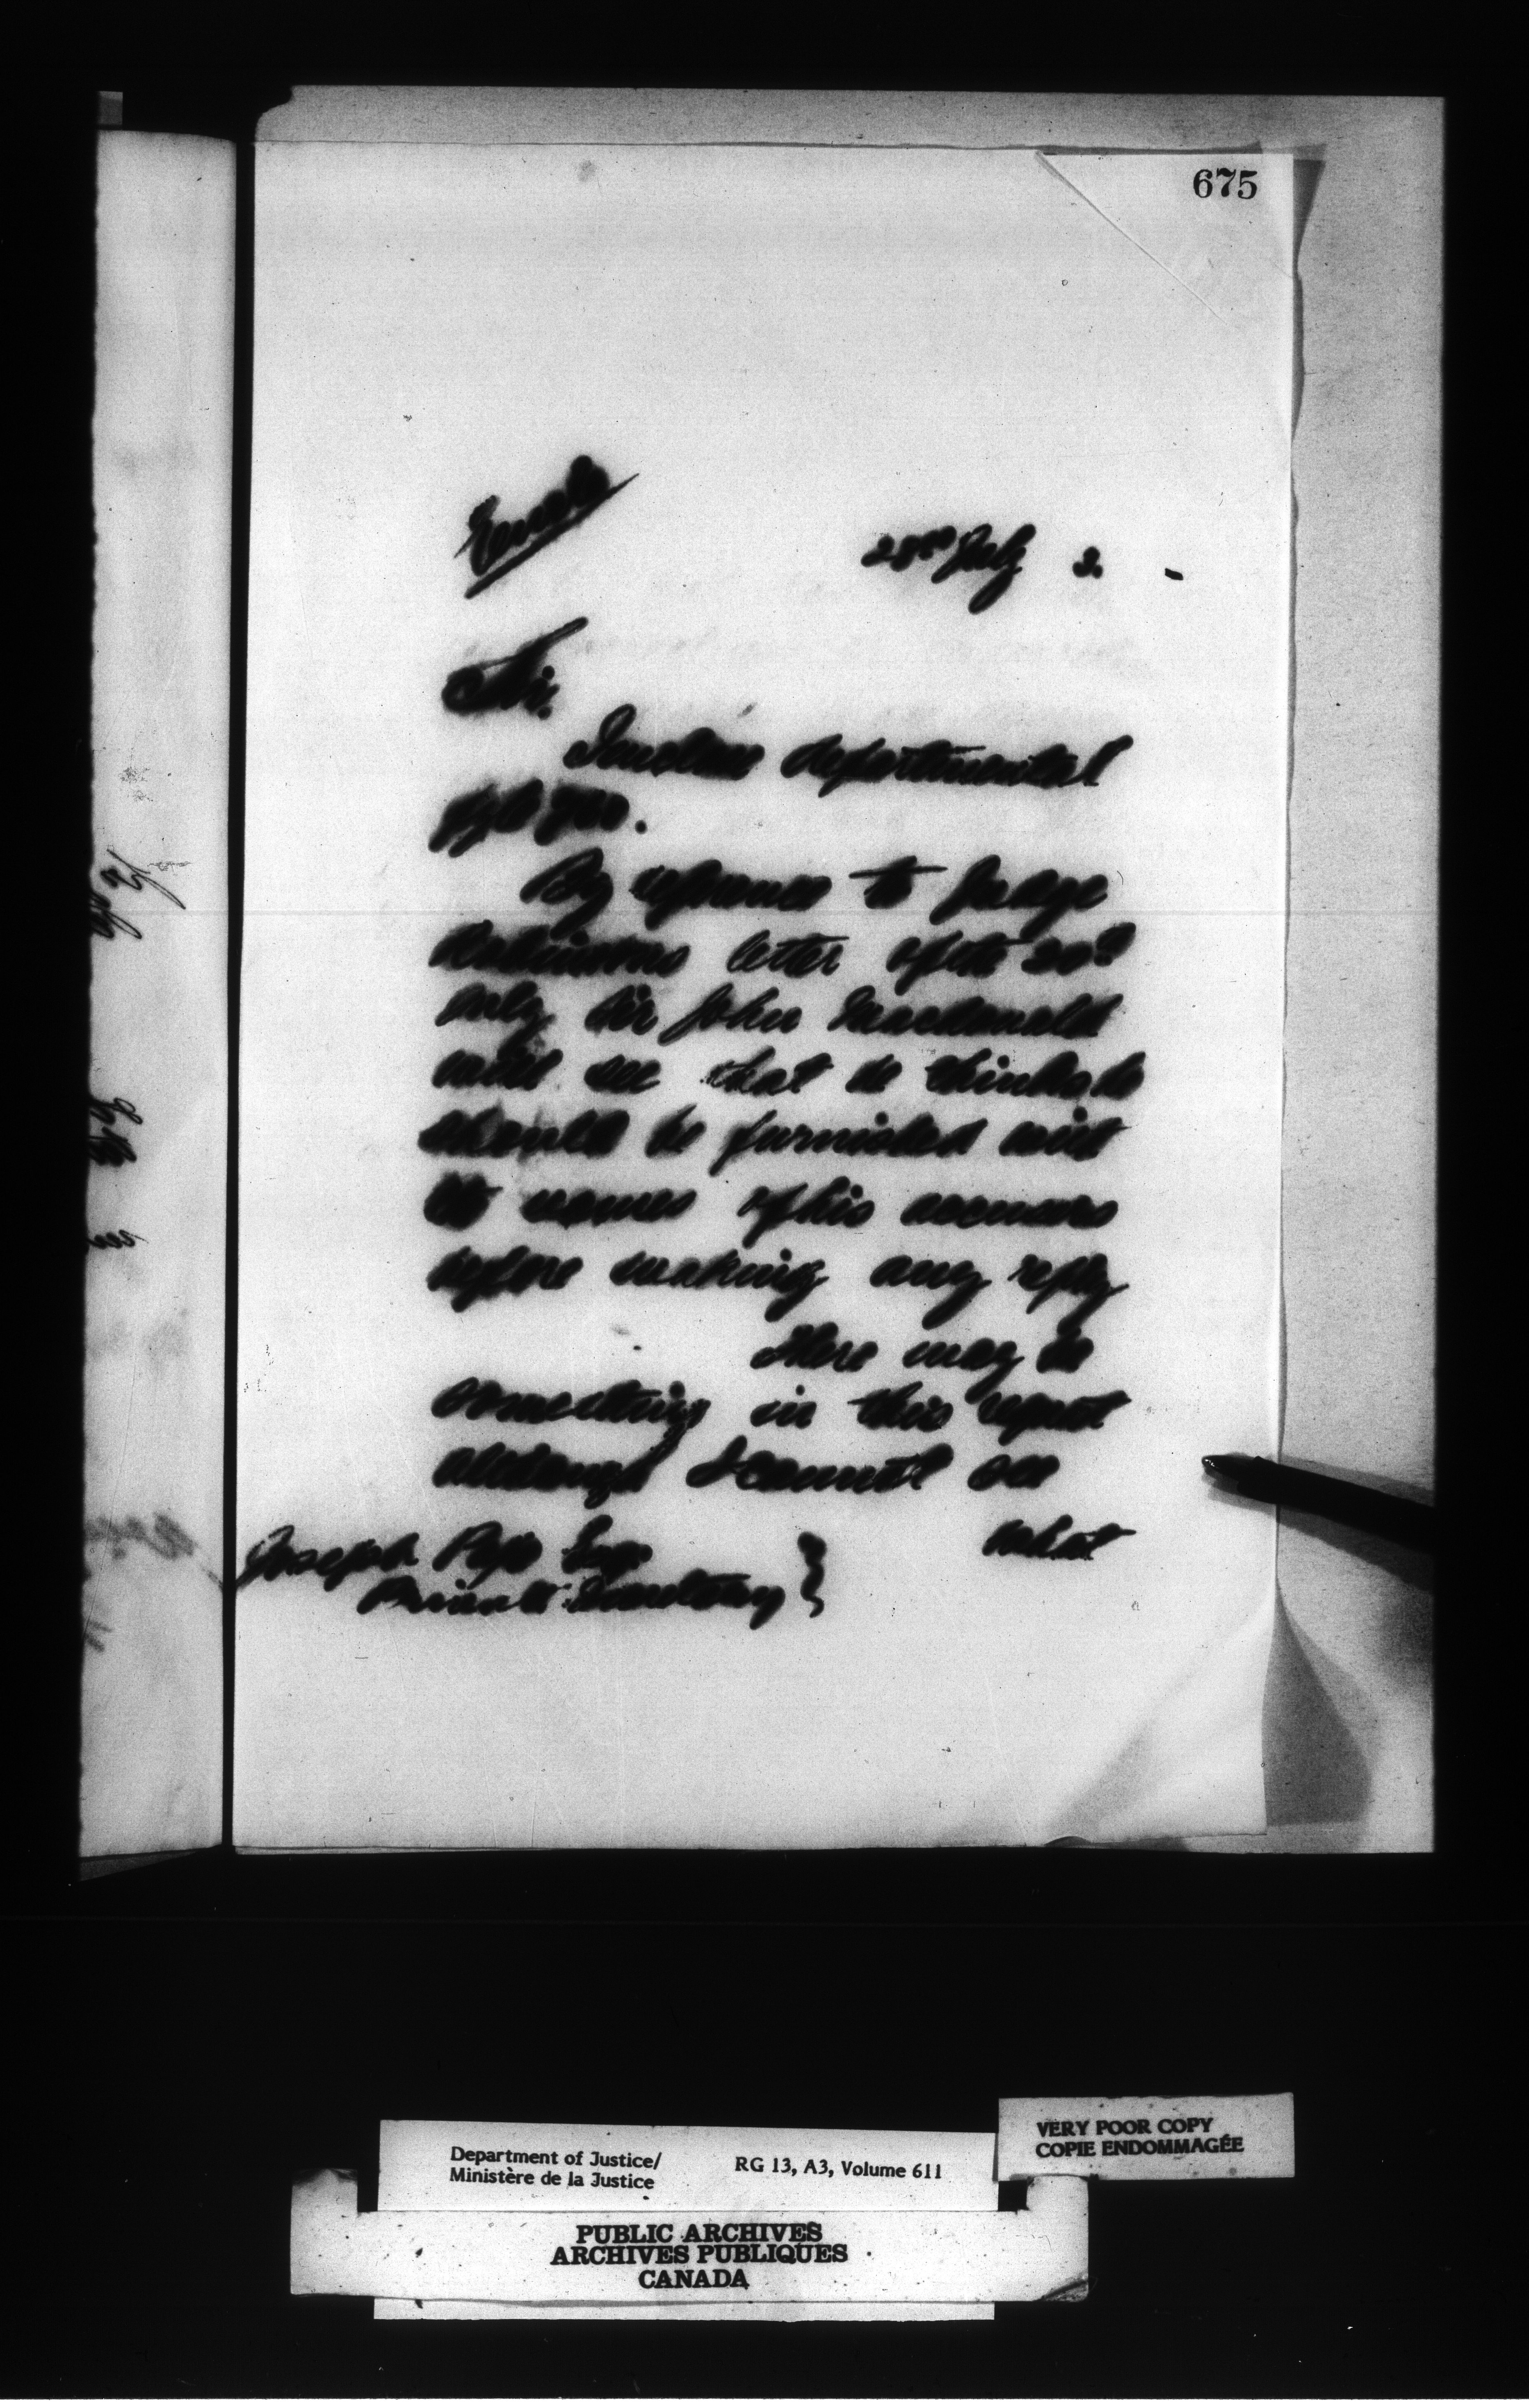 675
28th July 3.
Sir.
I enclose departmental
file
By reference to Judge
letter of the 20th
July Sir John Macdonald
will see that he thinks he
should be furnished with
the names of his accusers
before making any reply
There may be
something in this request
although I cannot see
what
Joseph Pope Esq
Private Secretary
VERY POOR COPY
COPIE ENDOMMAGÉE
Department of Justice/
Ministère de la Justice
RG 13, A3, Volume 611
PUBLIC ARCHIVES
ARCHIVES PUBLIQUES
CANADA